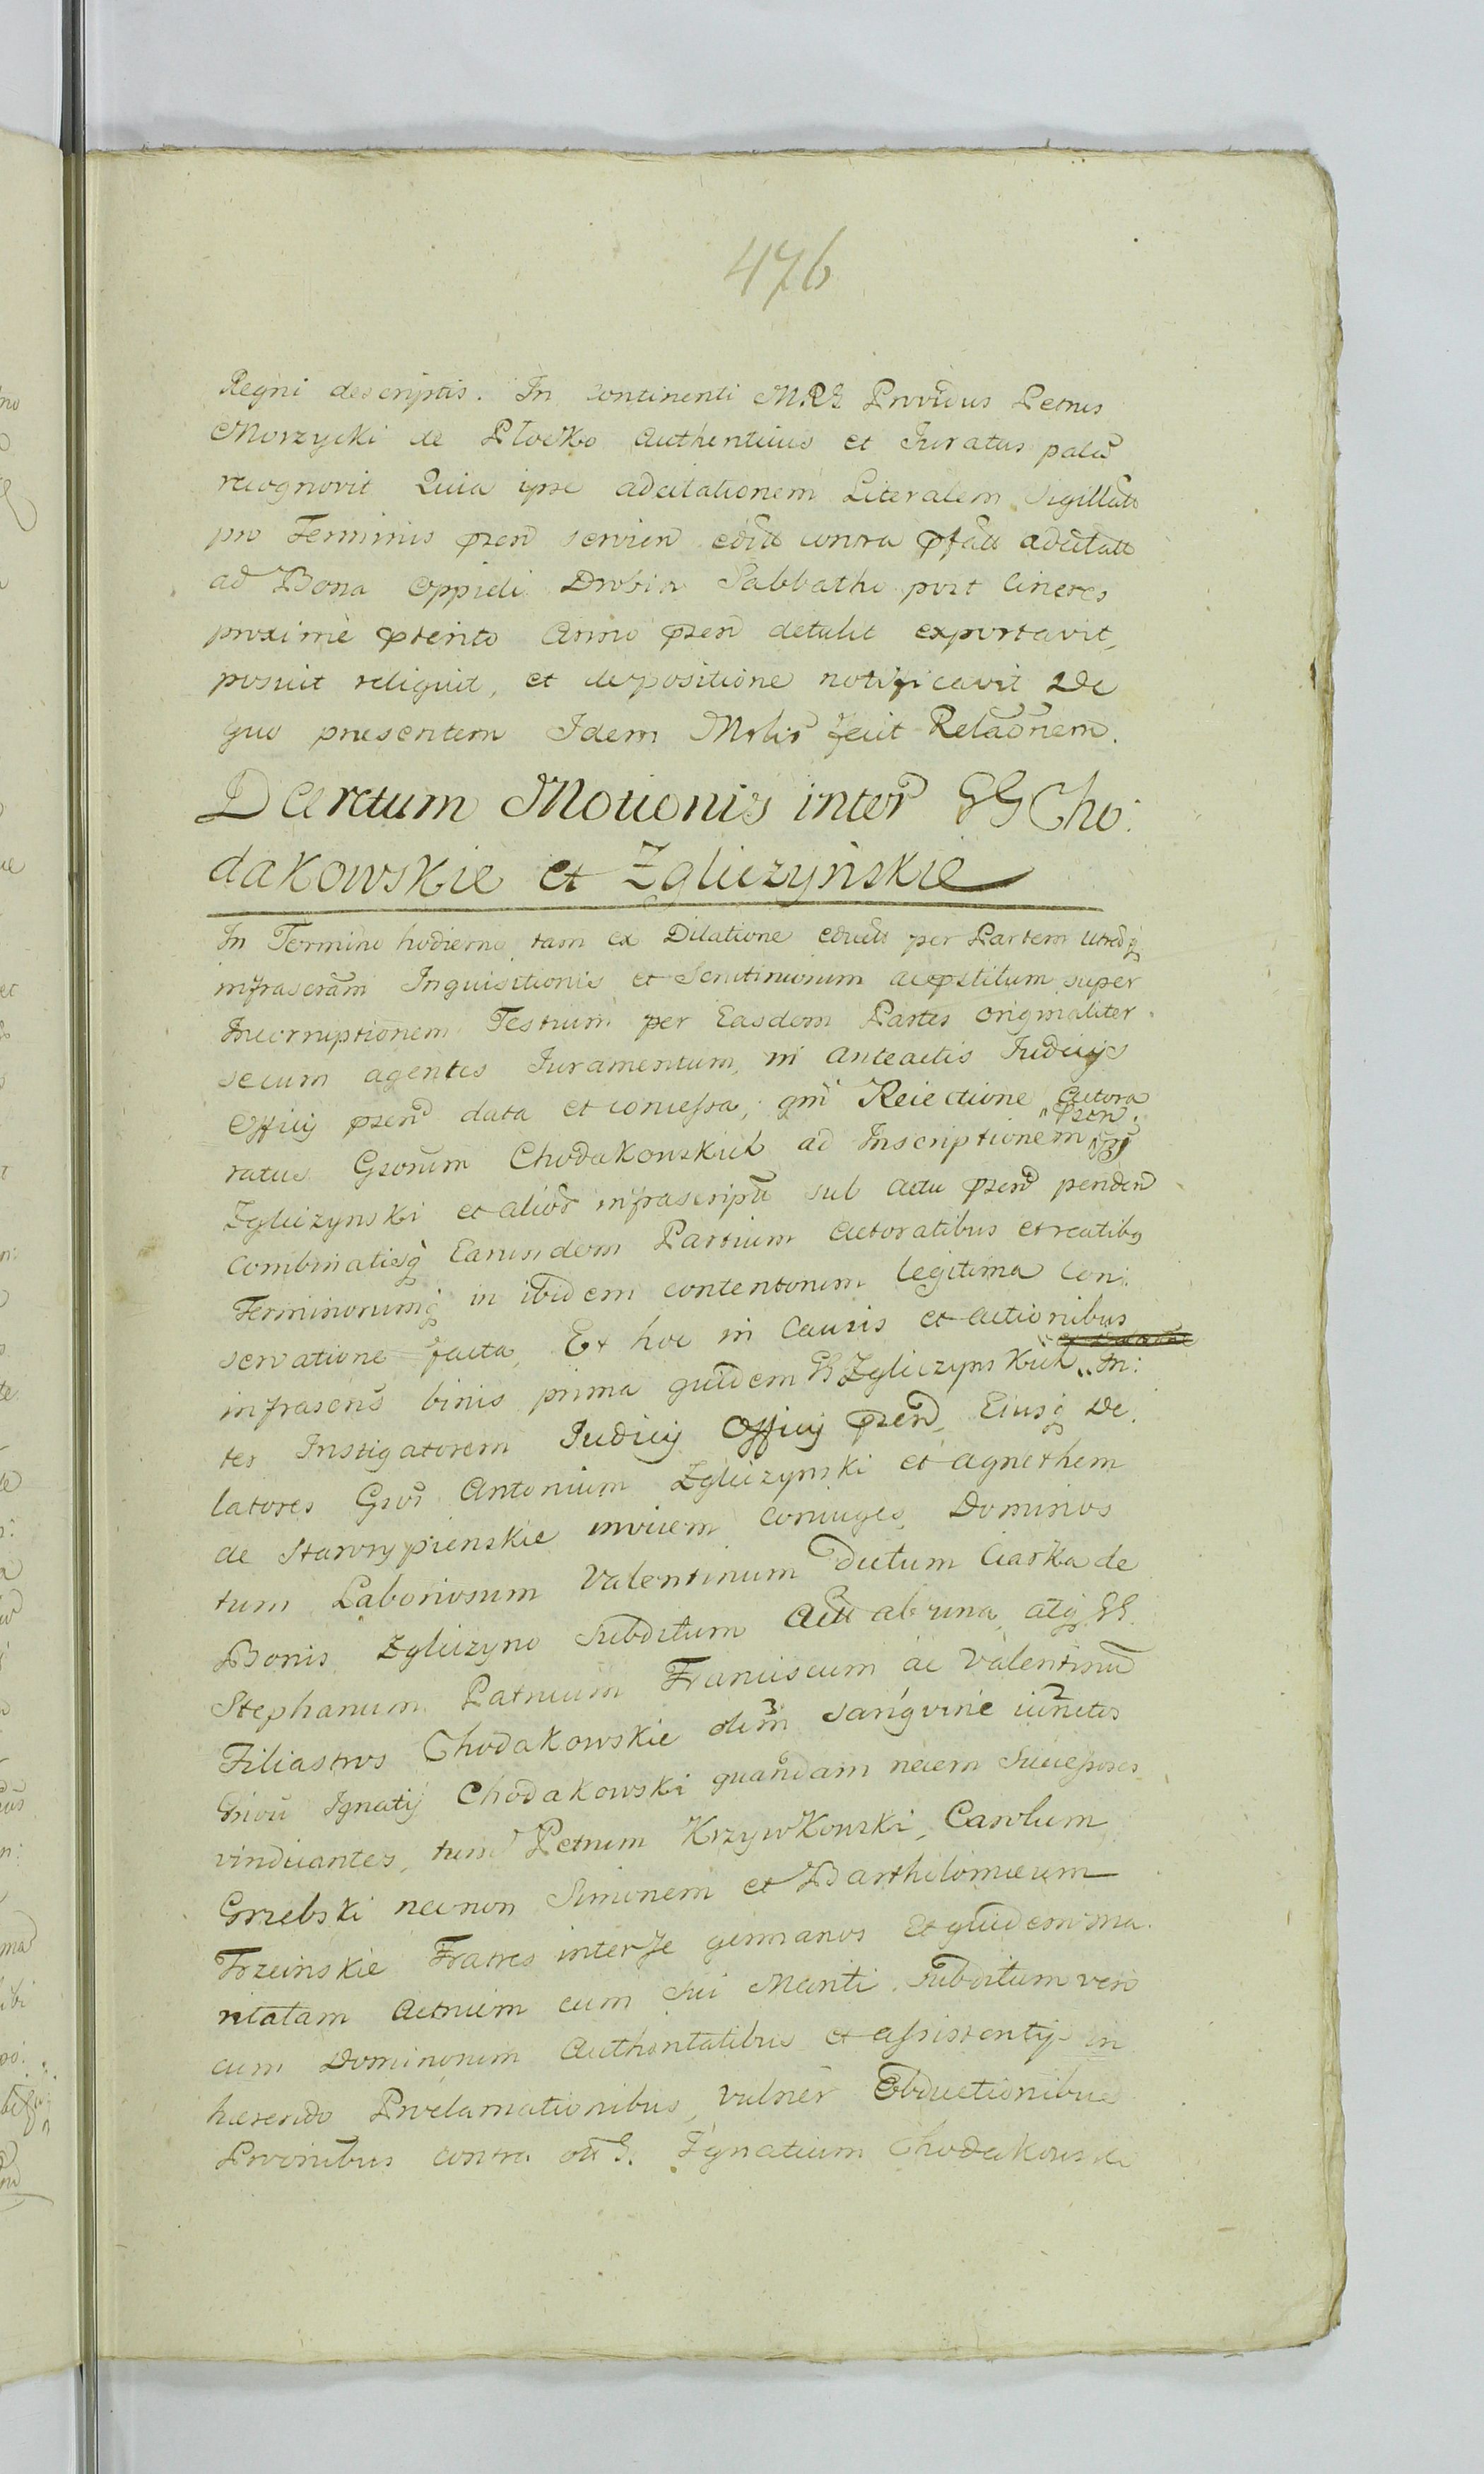 476
Regni descriptis. In continenti M.RG Providus Petrus
Morzycki de Płocko Authenticus et Juratus palã
recognovit Quia ipse adcitationem Literalem Sigillatã
pro Terminis pren̄ servien̄ edit̃ contra pfat̃ adcitat̃
ad Bona Oppidi Drobin Sabbatho post Cineres
proxime pterito Anno pren̄ detulit exportavit,
posuit reliquit, et de positione notificavit De
quo presentem Idem Mrlis fecit Relaõnem.
Decretum Motionis inter GG Cho:
dakowskie et Zgliczyńskie
In Termino hodierno tam ex Dilatione per Partem utrãq
infrascrãm Inquisitionis et Scrutiniorum ac pstitum super
Incorruptionem Testium per Easdem Partes originaliter
secum agentes Juramentum, in anteactis Judicijs
Officij psen̄ data et concessa, Reiectione Actora
ratus Gsorum Chodakowskich ad Inscriptionem psen:
Zgliczynski et alior̃ infrascript̃ sub actu psen̄ penden̄
combinatisq Earumdem Partium Actoratibus et reatibq
Terminorumq in ibidem contentorum legitima Con:
servatione facta, Et hoc in Causis et actionibus
infrascris̃ binis prima quidem G Zgliczynskich In:
ter Instigatorem Judicij Officij psen̄, Eiusq De:
latores Gsos Antonium Zgliczynski et Agnethem
de Starorypienskie invicem Coniuges, Dominos
tum Laboriosum Valentinum Dictum Ciaska de
Bonis Zgliczyno Subditum Act̃ ab una, atq GG
Stephanum Patruum Franciscum ac Valentinũ
Filiastros Chodakowskie olim sangvine iunctos
Gsioũ Ignatij Chodakowski quandam necem Successores
vindicantes, tum Petrum Krzywkowski, Carolum
Grzebski necnon Simonem et Barthilomæum
Trzcinskie Fratres inter se germanos Et quidem ma:
ritatam Actricem cum sui Mariti, Subditum vero
cum Dominorum Authoritatibus et assistentijs in
hærendo Proclamationibus, vulner̃ Obductionibus
Prioribus contra olĩ G. Ignatium Chodakowski